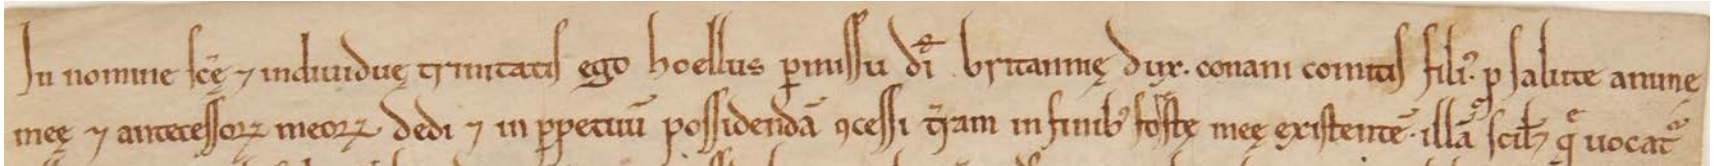 In nomine scę ⁊ indiuiduę trinitatis ego hoellus ꝑmissu di britannię dux. conani comitis filiꝰ. ꝓ salute animę
meę ⁊ antecessoꝝ meoꝝ dedi ⁊ in ꝑpetuū possidendā ꝯcessi t̄ram in finibꝰ foͬstę meę existentē. illā scilꝫ q̄ uocatᷣ